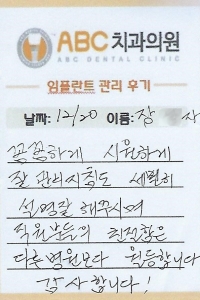 ABC 치과의원
ABC DENTAL CLINIC
임플란트 관리 후기
날짜: 12/20 이름: 장 사
꼼꼼하게 시원하게
잘 관리지침도 세면히
설명잘 해주시며
직원분들의 친절함은
다른병원보다 월등합니다
감사합니다!